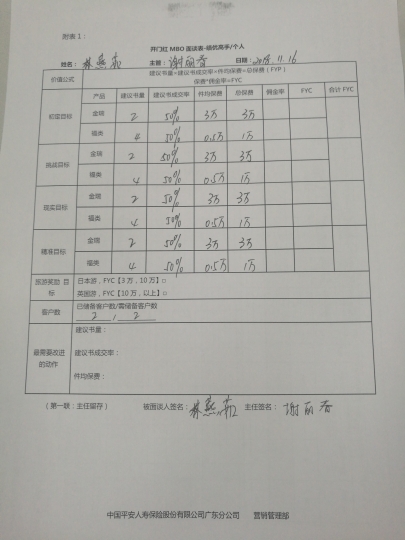 附表1：
开门红 MBO 面谈表-绩优高手/个人
姓名： 林燕 主管： 谢丽香 日期：2018.11.16
价值公式 建议书量×建议书成交率×件均保费=总保费（FYP）
保费*佣金率=FYC
产品 建议书量 建议书成交率 件均保费 总保费 佣金率 FYC 合计 FYC
初定目标 金瑞 2 50% 3万 3万
福类 4 50% 0.5万 1万
挑战目标 金瑞 2 50% 3万 3万
福类 4 50% 0.5万 1万
现实目标 金瑞 2 50% 3万 3万
福类 4 50% 0.5万 1万
精准目标 金瑞 2 50% 3万 3万
福类 4 50% 0.5万 1万
旅游奖励 目标 日本游，FYC【3 万，10 万】□
英国游，FYC【10 万，以上】□
客户数 已储备客户数/需储备客户数
2 / 2
最需要改进的动作 建议书量：
建议书成交率：
件均保费：
（第一联：主任留存） 被面谈人签名： 林燕 主任签名： 谢丽香
中国平安人寿保险股份有限公司广东分公司 营销管理部